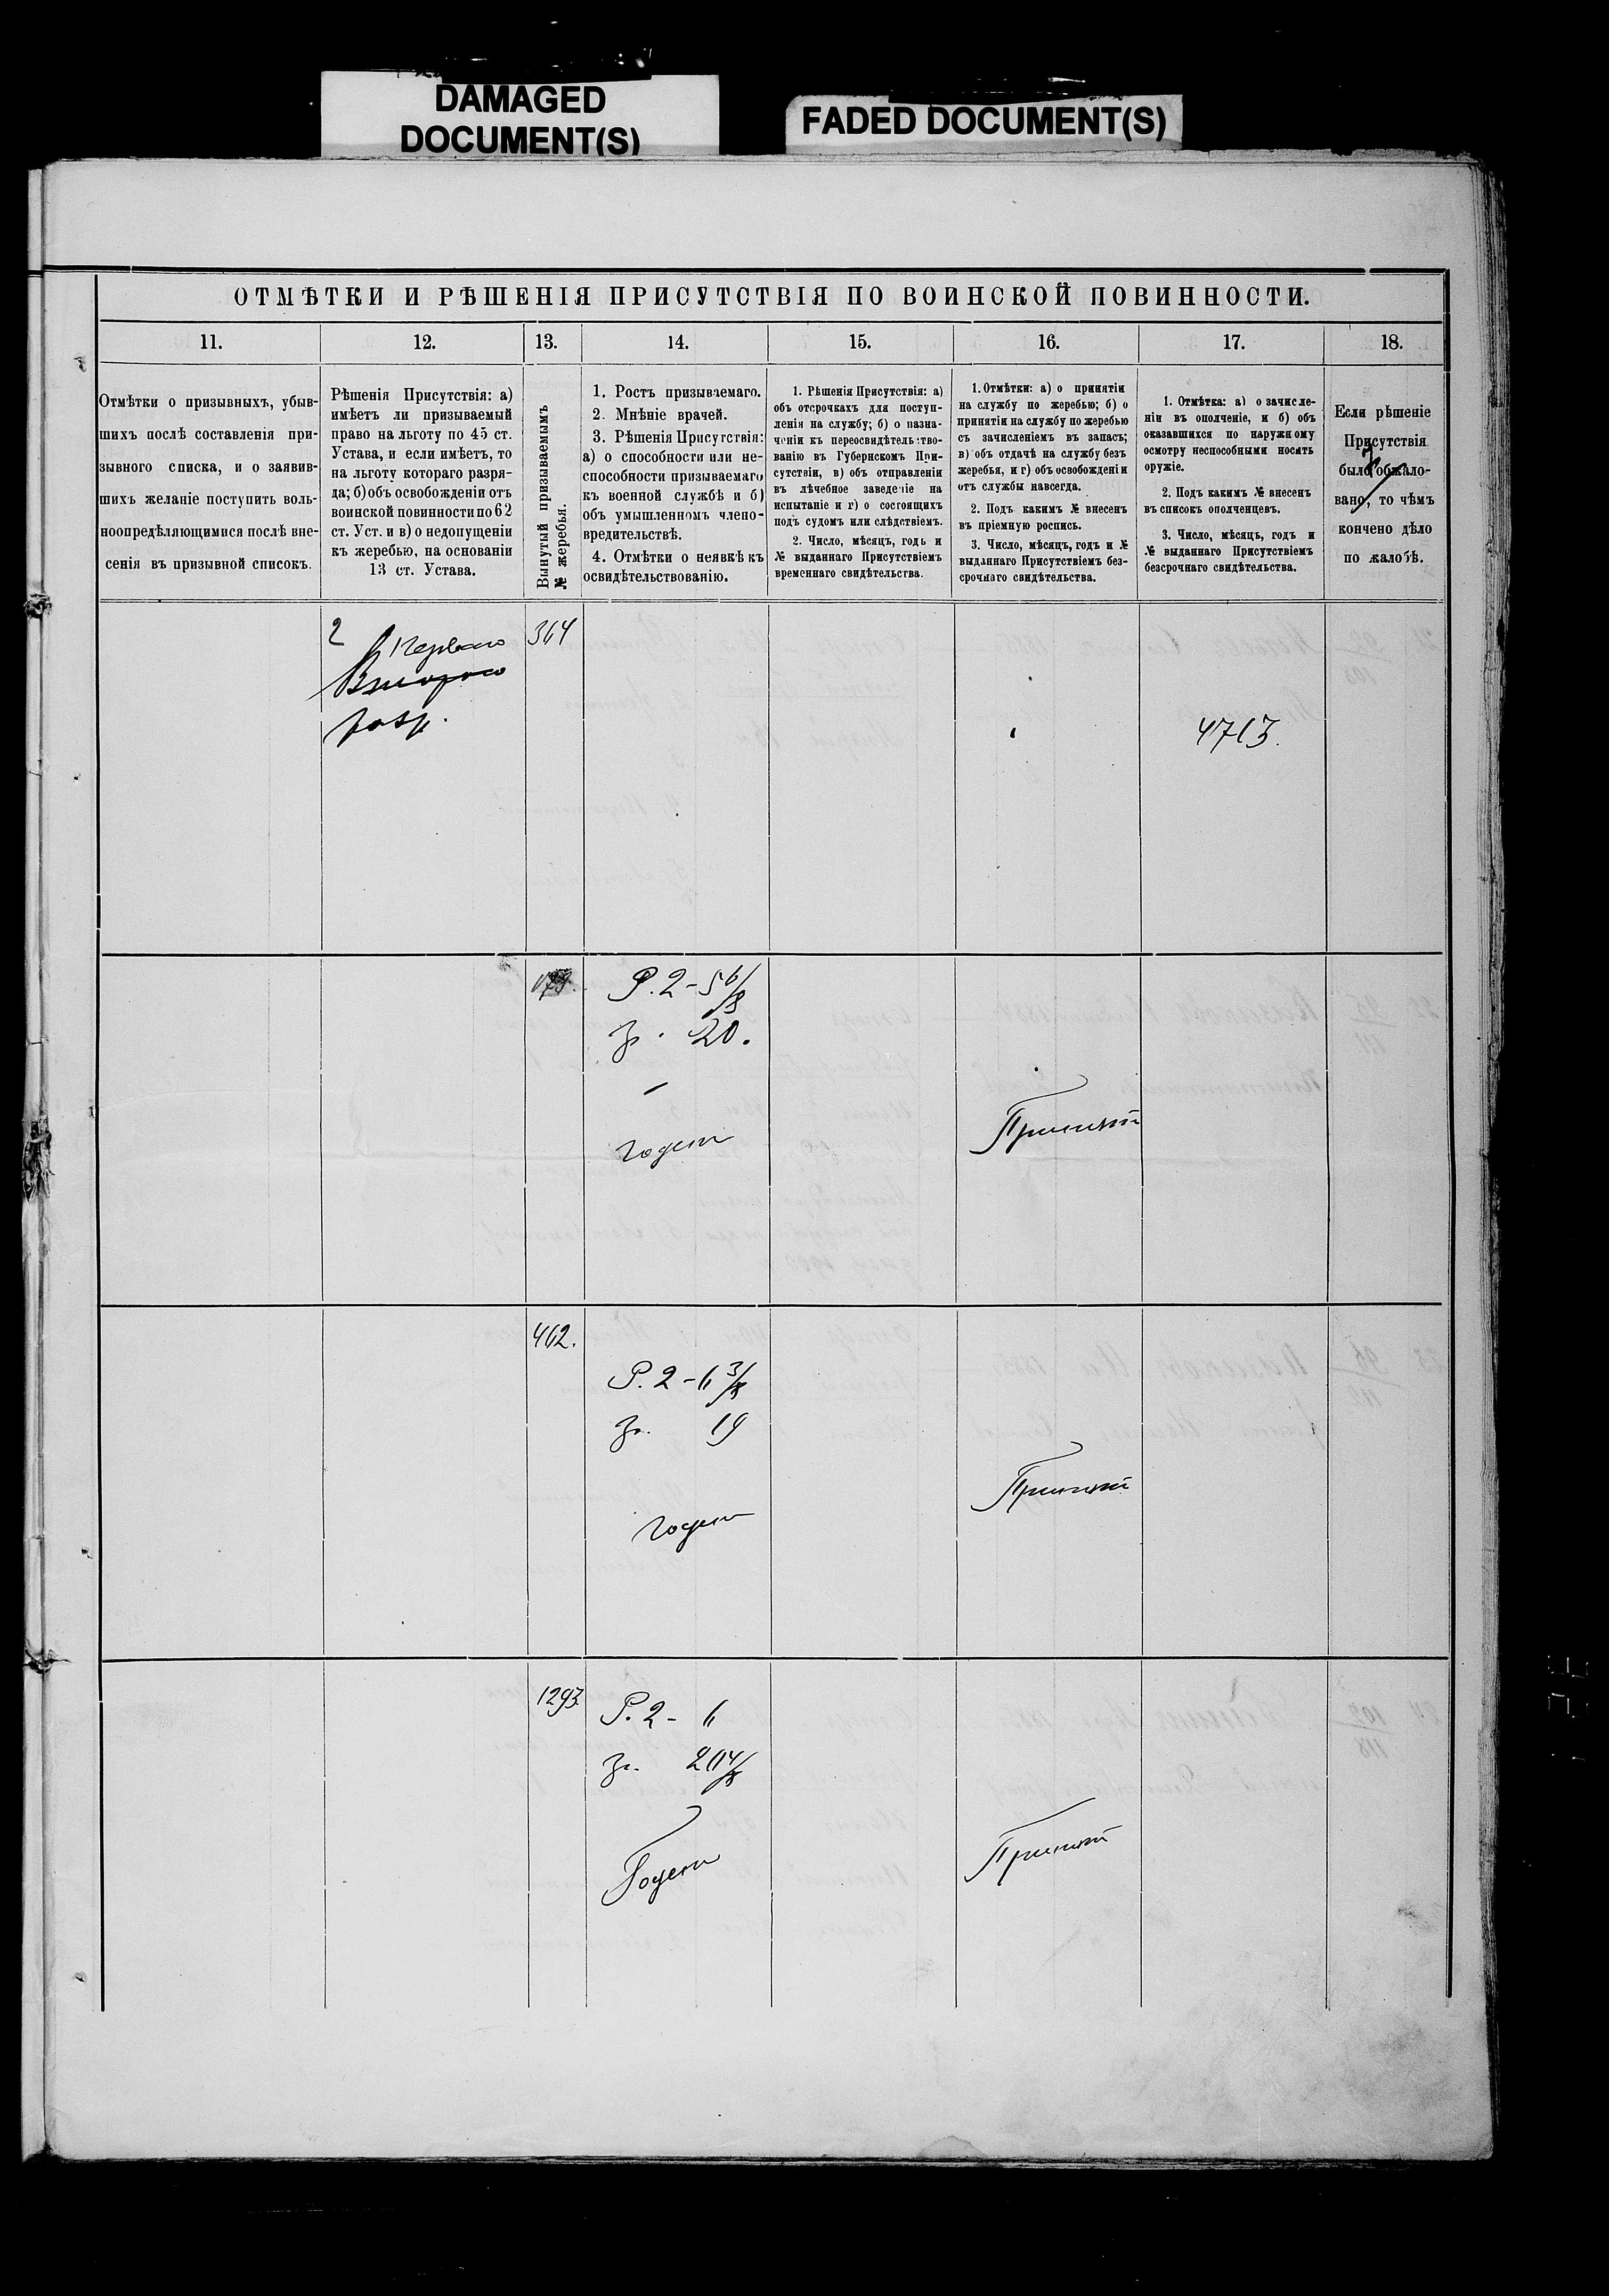 DAMAGED
DOCUMENT(S)
FADED DOCUMENT(S)
ОТМѢТКИ И РѢШЕНІЯ ПРИСУТСТВІЯ ПО ВОИНСКОЙ ПОВИННОСТИ.
11.
12.
13.
14.
15.
16.
17.
18.
Отмѣтки о призывныхъ, убыв-
шихъ послѣ составленія при-
зывного списка, и о заявив-
шихъ желаніе поступить воль-
ноопредѣляющимися послѣ вне-
сенія въ призывной списокъ.
Рѣшенія Присутствія: а)
имѣетъ ли призываемый
право на льготу по 45 ст.
Устава, и если имѣетъ, то
на льготу котораго разря-
да; б) объ освобожденіи отъ
воинской повинности по 62
ст. Уст. и в) о недопущеніи
къ жеребью, на основаніи
13 ст. Устава.
Вынутый призываемымъ
№ жеребья.
1. Ростъ призываемаго.
2. Мнѣніе врачей.
3. Рѣшенія Присутствія:
а) о способности или не-
способности призываемаго
къ военной службѣ и б)
объ умышленномъ члено-
вредительствѣ.
4. Отмѣтки о неявкѣ къ
освидѣтельствованію.
1. Рѣшенія Присутствія: а)
объ отсрочкахъ для поступ-
ленія на службу; б) о назна-
ченіи къ переосвидѣтельство-
ванію въ Губернскомъ При-
сутствіи, в) объ отправленіи
въ лѣчебное заведеніе на
испытаніе и г) о состоящихъ
подъ судомъ или слѣдствіемъ.
2. Число, мѣсяцъ, годъ и
№ выданнаго Присутствіемъ
временнаго свидѣтельства.
1. Отмѣтки: а) о принятіи
на службу по жеребью; б) о
принятіи на службу по жеребью
съ зачисленіемъ въ запасъ;
в) объ отдачѣ на службу безъ
жеребья, и г) объ освобожденіи
отъ службы навсегда.
2. Подъ какимъ № внесенъ
въ пріемную роспись.
3. Число, мѣсяцъ, годъ и №
выданнаго Присутствіемъ без-
срочнаго свидѣтельства.
1. Отмѣтка: а) о зачисле-
ніи въ ополченіе, и б) объ
оказавшихся по наружному
осмотру неспособными носить
оружіе.
2. Подъ какимъ № внесенъ
въ списокъ ополченцевъ.
3. Число, мѣсяцъ, годъ и
№ выданнаго Присутствіемъ
безсрочнаго свидѣтельства.
Если рѣшеніе
Присутствія
было обжало-
вано, то чѣмъ
кончено дѣло
по жалобѣ.
2
Перваго
Второго
разр.
364
4713.
Р. 2 - 5 6/8
гр. 20.
годенъ
Принятъ
462.
Р. 2 - 6 3/8
гр. 19
годенъ
Принятъ
1293
Р. 2 - 6
гр.
Годенъ
Принятъ